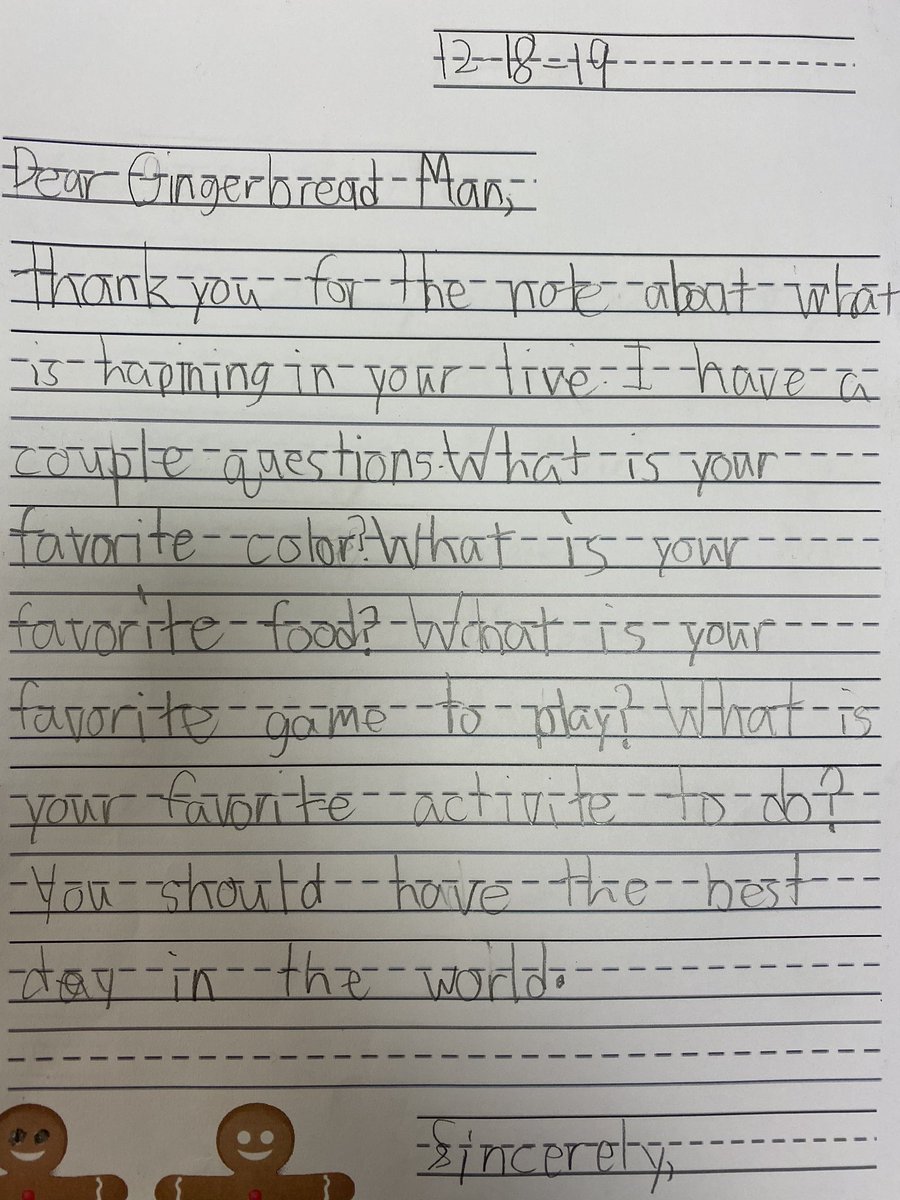 12-18-19
Dear Gingerbread Man,
thank you for the note about what
is hapining in your live. I have a
couple questions. What is your
favorite color? What is your
favorite food? What is your
favorite game to play? What is
your favorite activite to do?
You should have the best
day in the world.
Sincerely,